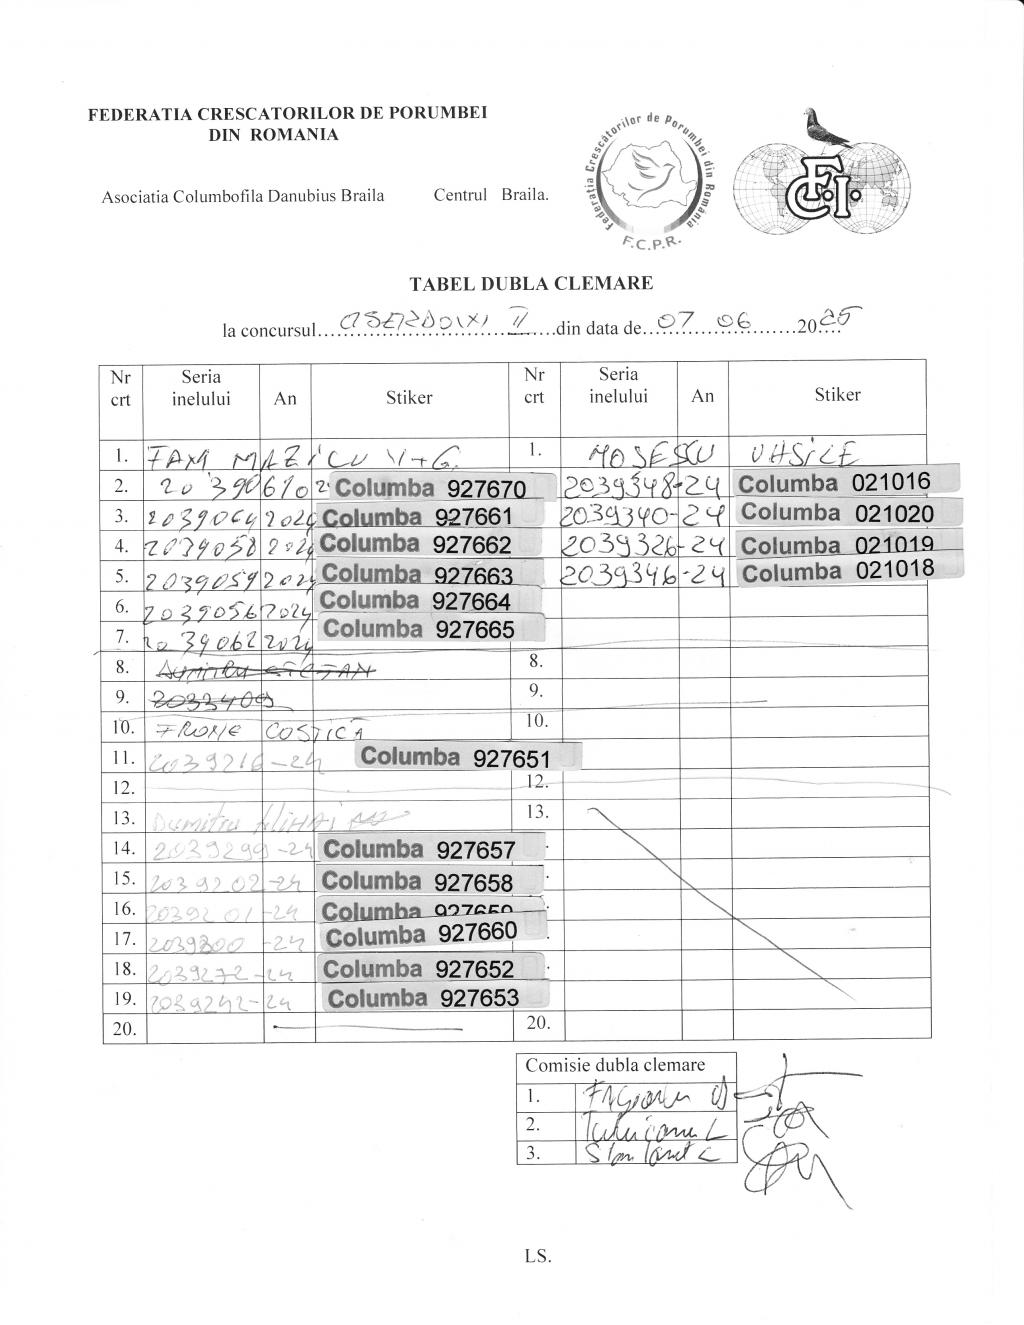 FEDERATIA CRESCATORILOR DE PORUMBEI
DIN ROMANIA
Federatia Crescătorilor de Porumbei din România
F.C.P.R.
F.C.I.
Asociatia Columbofila Danubius Braila Centrul Braila.
TABEL DUBLA CLEMARE
la concursul.......... II .....din data de...07 06..........2025
Nr crt Seria inelului An Stiker Nr crt Seria inelului An Stiker
1. FAM MAZICU V+G. 1. MOSESCU VASILE
2. 2039061 02 Columba 927670 2039348-24 Columba 021016
3. 2039064 2024 Columba 927661 2039340-24 Columba 021020
4. 2039058 2024 Columba 927662 2039326-24 Columba 021019
5. 2039059 2024 Columba 927663 2039346-24 Columba 021018
6. 2039056 2024 Columba 927664
7. 2039062 2024 Columba 927665
8. 8.
9. 2033409 9.
10. COSTICĂ 10.
11. 2039216-24 Columba 927651
12. 12.
13. Dumitru MIHAI 13.
14. 2039299-24 Columba 927657
15. 2039202-24 Columba 927658
16. 2039201-24 Columba 927659
17. 2039200-24 Columba 927660
18. 2039272-24 Columba 927652
19. 2039242-24 Columba 927653
20. 20.
Comisie dubla clemare
1.
2.
3.
LS.